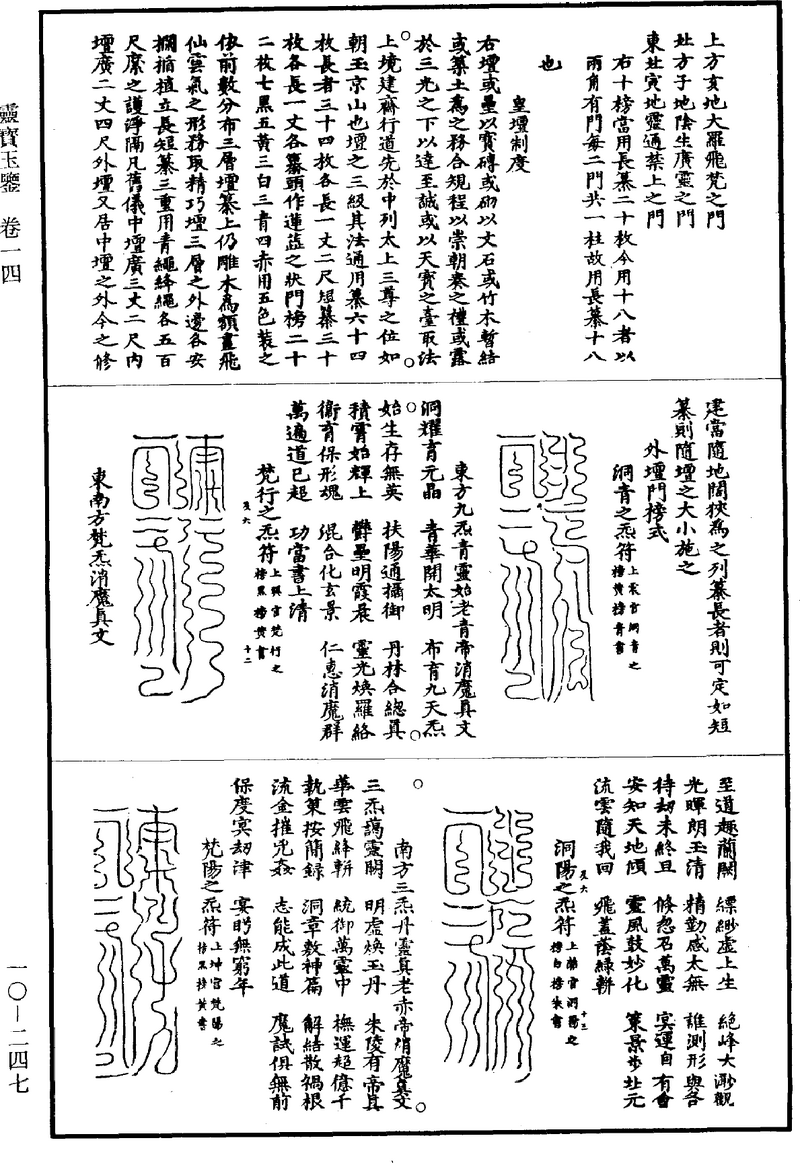 上方亥地大羅飛梵之門
北方子地陰生廣靈之門
東北寅地靈通禁上之門
右十榜當用長纂二十枚今用十八者以
兩角有門每二門共一柱故用長纂十八
也
皇壇制度
右壇或壘以寶磚或砌以文石或竹木暫結
或築土為之務合規程以崇朝奏之禮或露
於三光之下以達至誠或以天寶之臺取法
上境建齋行道先於中列太上三尊之位如
朝玉京山也壇之三級其法通用纂六十四
枚長者三十四枚各長一丈二尺短纂三十
枚各長一丈各纂頭作蓮蕋之狀門榜二十
二枚七黑五黃三白三青四赤用五色裝之
依前數分布三層壇纂上仍雕木為額畫飛
仙雲氣之形務取精巧壇三層之外邊各安
欄楯植立長短纂三重用青繩絳繩各五百
尺縻之護淨隔凡舊儀中壇廣三丈二尺內
壇廣二丈四尺外壇又居中壇之外今之修
建當隨地闊狹為之列纂長者則可定如短
纂則隨壇之大小施之
外壇門榜式
洞青之炁符
上震宮洞青之
榜黃榜青書
東方九炁青靈始老青帝消魔真文
洞耀育元晶　青華開太明　布育九天炁
始生存無英　扶陽通攝御　丹林合總真
積霄始輝上　欝壘明霞晨　靈光煥羅絡
衛育保形魂　混合化玄景　仁惠消魔群
萬遍道已超　功當書上清
梵行之炁符
上巽宮梵行之
榜黑榜黃書
十二
東南方梵炁消魔真文
至道趣蘭闕　縹緲虛上生　絕峰大渺觀
光暉朗玉清　精勤感太無　誰測形與名
待劫未終且　倏忽召萬靈　冥運自有會
安知天地傾　靈風鼓妙化　策景步北元
流雲隨我回　飛蓋蔭綠軿
洞陽之炁符
上離宮洞陽之
榜白榜朱書
十三
南方三炁丹靈真老赤帝消魔真文
三炁藹靈關　明虛煥玉丹　朱陵有帝真
華雲飛絳軿　統御萬靈中　撫運超億千
執策按簡錄　洞章敷神篇　解結散禍根
流金摧兇姦　志能成此道　魔試俱無前
保度冥劫津　宴眄無窮年
梵陽之炁符
上坤宮梵陽之
榜黑榜黃書
靈寶玉鑒　卷一四
一〇—二四七